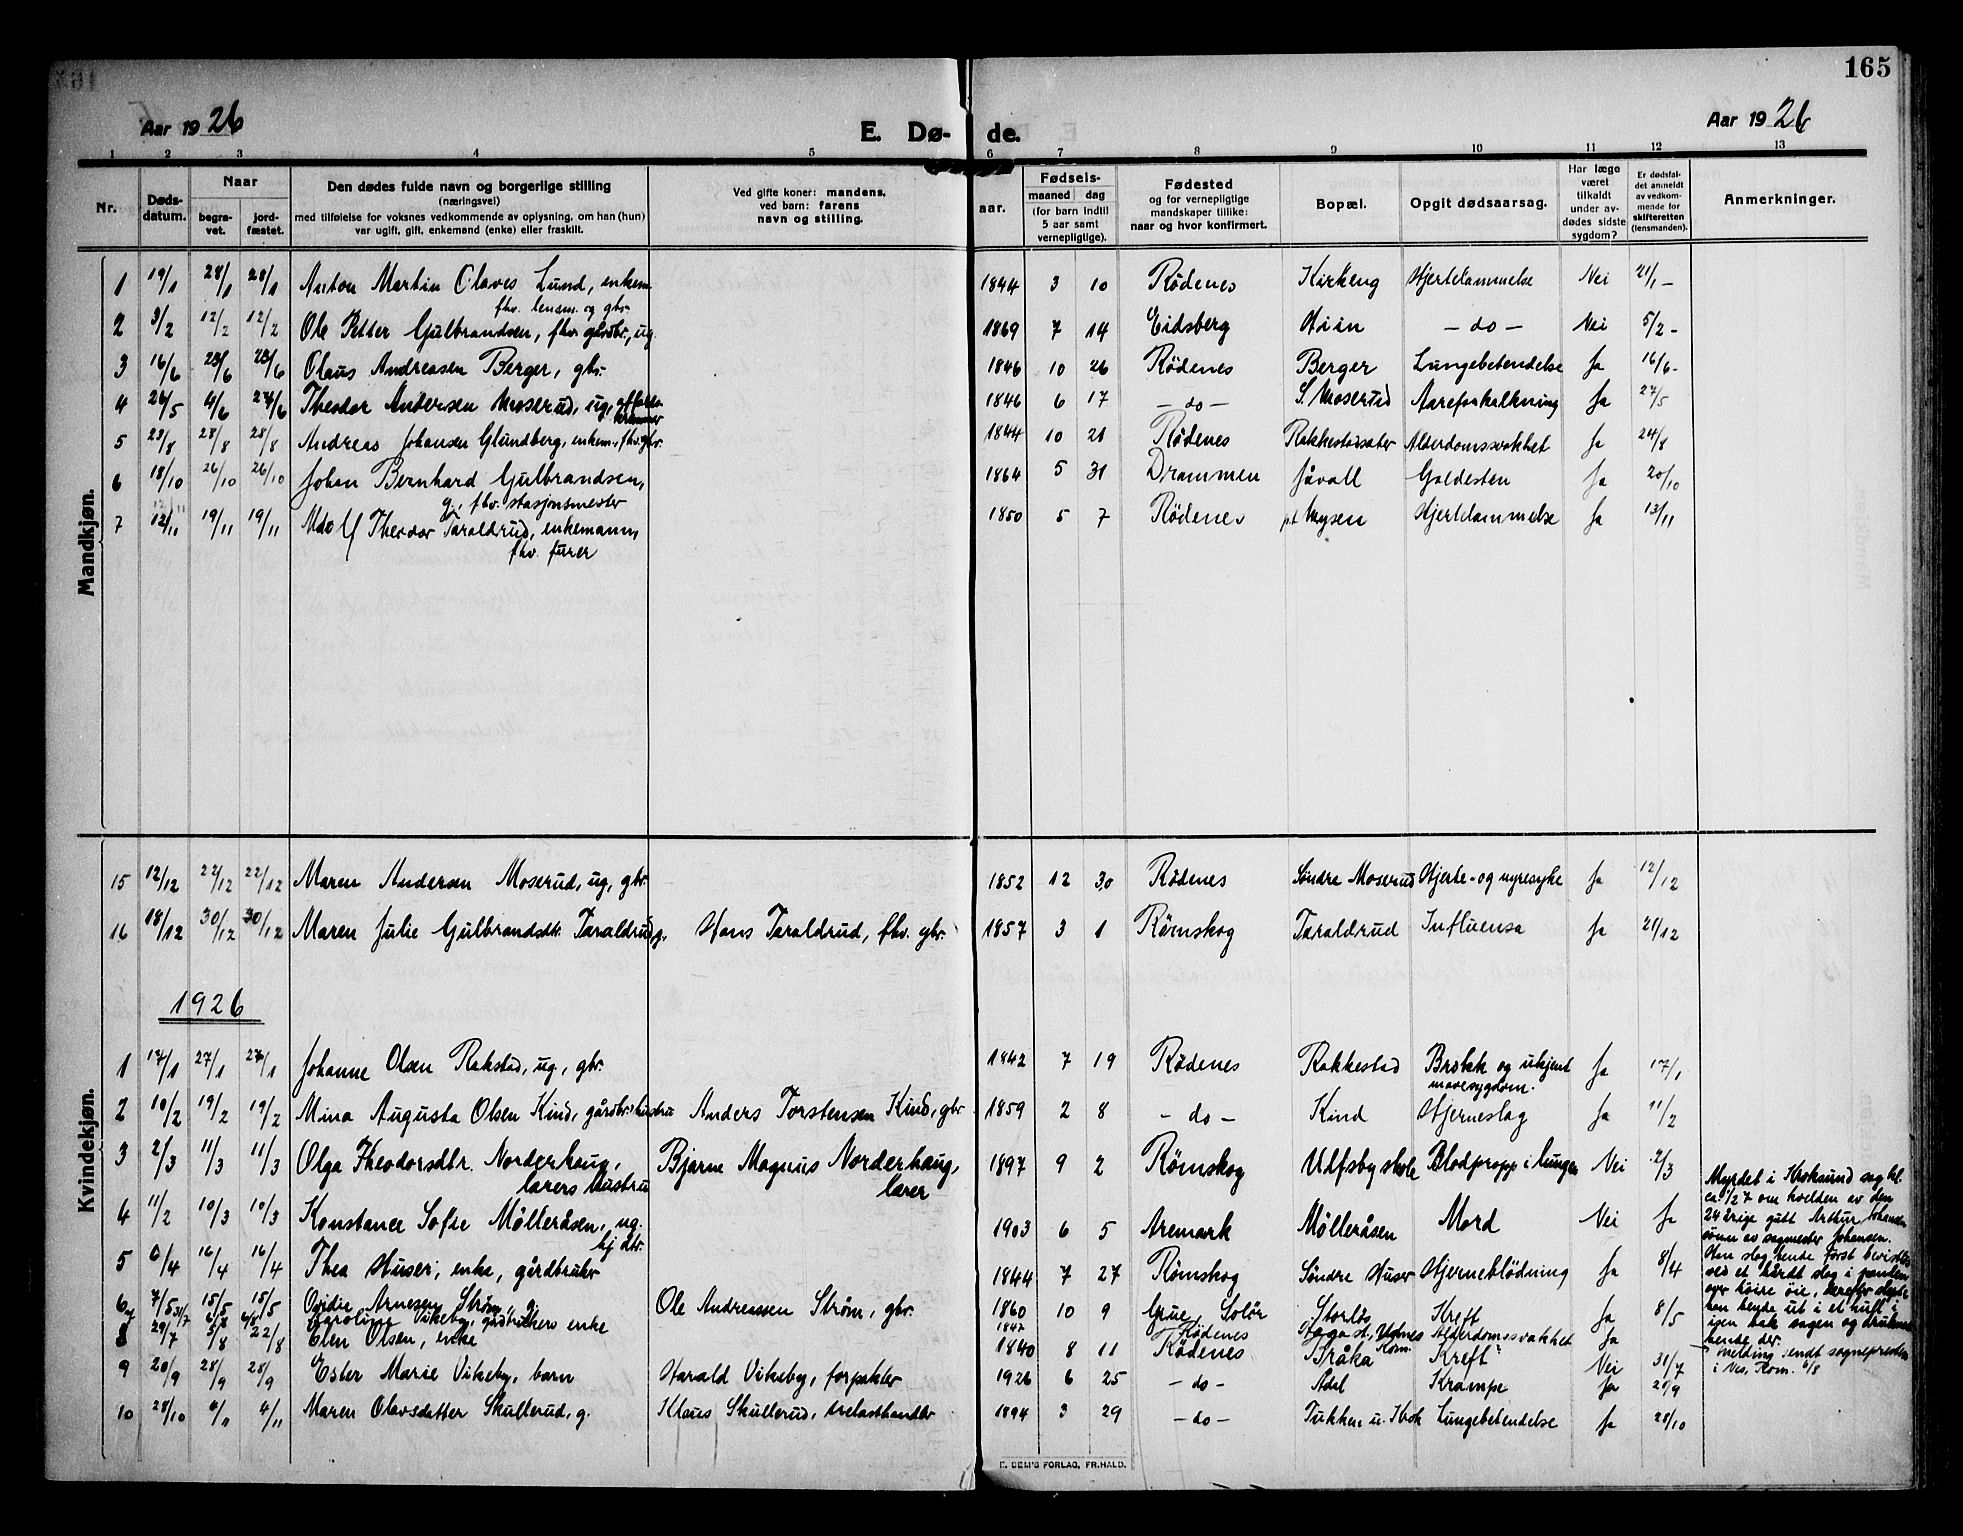 165
Aar 1926
E. Dø- de.
Aar 1926
1 2 3 4 5 6 7 8 9 10 11 12 13
Nr.
Døds-datum.
Naar
begra-vet.
jord-fæstet.
Den dødes fulde navn og borgerlige stilling
(næringsvei)
med tilføielse for voksnes vedkommende av oplysning, om han (hun)
var ugift, gift, enkemand (enke) eller fraskilt.
Ved gifte koner: mandens,
ved barn: farens
navn og stilling.
Fødsels-
aar.
maaned dag
(for barn indtil
5 aar samt
vernepligtige).
Fødested
og for vernepligtige
mandskaper tillike:
naar og hvor konfirmert.
Bopæl.
Opgit dødsaarsag.
Har læge
været
tilkaldt
under av-
dødes sidste
sygdom?
Er dødsfal-
det anmeldt
av vedkom-
mende for
skifteretten
(lensmanden).
Anmerkninger.
Mandkjøn.
1 19/1 28/1 28/1 Anton Martin Olaves Lund, enkem. 1844 3 10 Rödenes Kirkeng Hjertelammelse Nei 21/1 -
fhv. lensm. og gbr.
2 3/2 12/2 12/2 Ole Petter Gulbrandsen, fhv. gårdbr., ug. 1869 7 14 Eidsberg - do - Nei 5/2 -
3 16/6 23/6 23/6 Olaus Andreasen Berger, gbr. 1846 10 26 Rödenes Berger Lungebetendelse Ja 16/6 -
4 26/5 4/6 Theodor Andersen Moserud, ug., 1846 6 17 - do - S. Moserud Aareforkalkning Ja 27/5
5 23/8 28/8 28/8 Andreas Johansen Glundberg, enkem., fhv. gbr. 1844 10 21 Rödenes Alderdomssvakhet Ja 24/8
6 18/10 26/10 26/10 Johan Bernhard Gulbrandsen, 1864 5 31 Drammen Jåvall Galdesten Ja 20/10
g., fhv. stasjonsmester
7 12/11 19/11 19/11 Adolf Theodor Taraldrud, enkemann, 1850 5 7 Rödenes p.t. Mysen Hjertelammelse Ja 13/11
fhv. furer
Kvindekjøn.
15 12/12 22/12 22/12 Maren Andersen Moserud, ug., gbr. 1852 12 30 Rödenes Søndre Moserud Hjerte- og nyresyke Ja 12/12
16 18/12 30/12 30/12 Maren Julie Gulbrandsdtr. Taraldrud, g. Hans Taraldrud, fhv. gbr. 1857 3 1 Römskog Taraldrud Influensa Ja 21/12
1926
1 17/1 27/1 27/1 Johanne Olsen Rakstad, ug., gbr. 1842 7 19 Rödenes Rakkestad Brokk og ukjent Ja 17/1
mavesygdom.
2 10/2 19/2 19/2 Mina Augusta Olsen Kind, gårdbr. hustru Anders Torstensen Kind, gbr. 1859 2 8 - do - Kind Hjerneslag Ja 11/2
3 2/3 11/3 11/3 Olga Theodorsdtr. Norderhaug, Bjarne Magnus Norderhaug, 1897 9 2 Römskog Ulfsby skole Blodpropp i lungen Nei 2/3
lærers hustru lærer
4 11/2 10/3 10/3 Konstance Sofie Mölleråsen, ug. 1903 6 5 Aremark Mölleråsen Mord Nei Ja
hj. dtr.
5 6/4 16/4 16/4 Thea Huser, enke, gårdbruker 1844 7 27 Römskog Søndre Huser Hjerneblödning Ja 8/4
6 7/5 15/5 15/5 Arnesen Strøm, g. Ole Andreassen Strøm, gbr. 1860 10 9 Grue, Solör Storlös Kreft Ja 8/5
7 31/7 Karoline Vikeby, gårdbrukers enke 1847 Rödenes Alderdomssvakhet Ja
8 29/7 5/8 22/8 Elen Olsen, enke 1840 8 11 Rödenes Bråka Kreft Nei 31/7
9 20/9 28/9 28/9 Ester Marie Vikeby, barn Harald Vikeby, forpakter 1926 6 25 - do - Adel Krampe Ja 21/9
10 28/10 4/11 4/11 Maren Olavsdatter Skullerud, g. Klaus Skullerud, trelasthandler 1894 3 29 - do - Lungebetendelse Ja 28/10
Myrdet i Kroksund sag kl.
ca 1/2 7 om kvelden av den
24 årige gutt Arthur Johansen
sönn av sagmester Johansen.
Han slog hende först bevistlös
ved et hårdt slag i panden
over höire öie, derefter slepte
han hende ut i et hull i
isen bak sagen og druknet
hende der.
Melding sendt sognepresten
E. SEM'S FORLAG, FR.HALD.